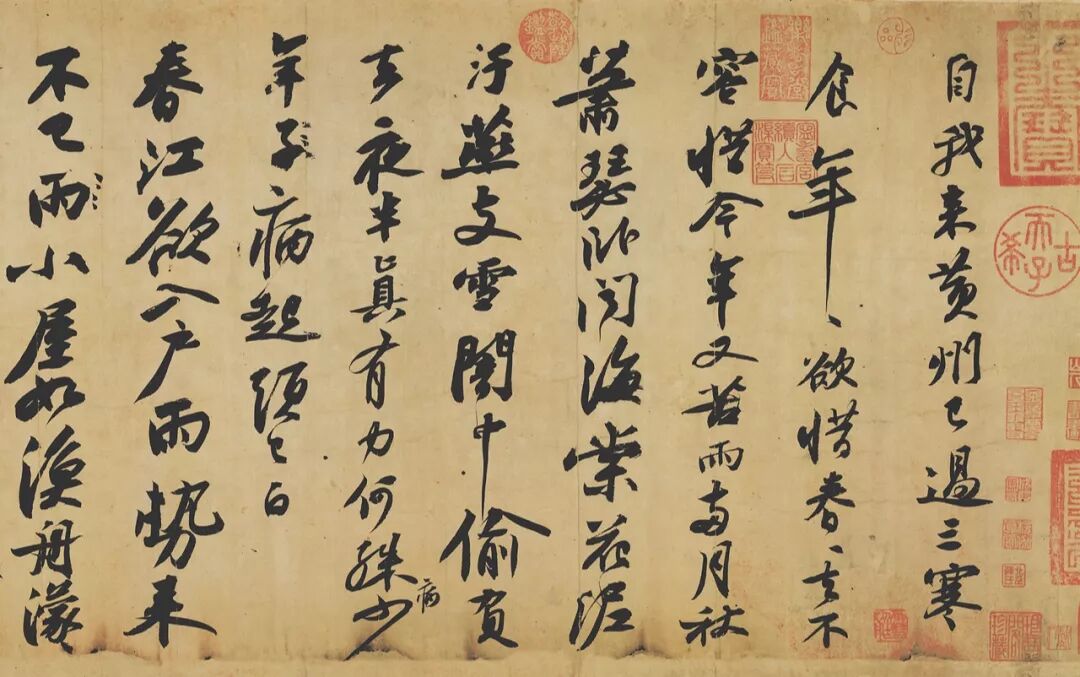 自我来黄州已過三寒
食年〻欲惜春〻去不
容惜今年又苦雨兩月秋
蕭瑟卧聞海棠花泥
汙燕支雪闇中偷負
去夜半真有力何殊少
病
年子病起須已白
春江欲入户雨勢来
不已雨小屋如漁舟濛
古希天子